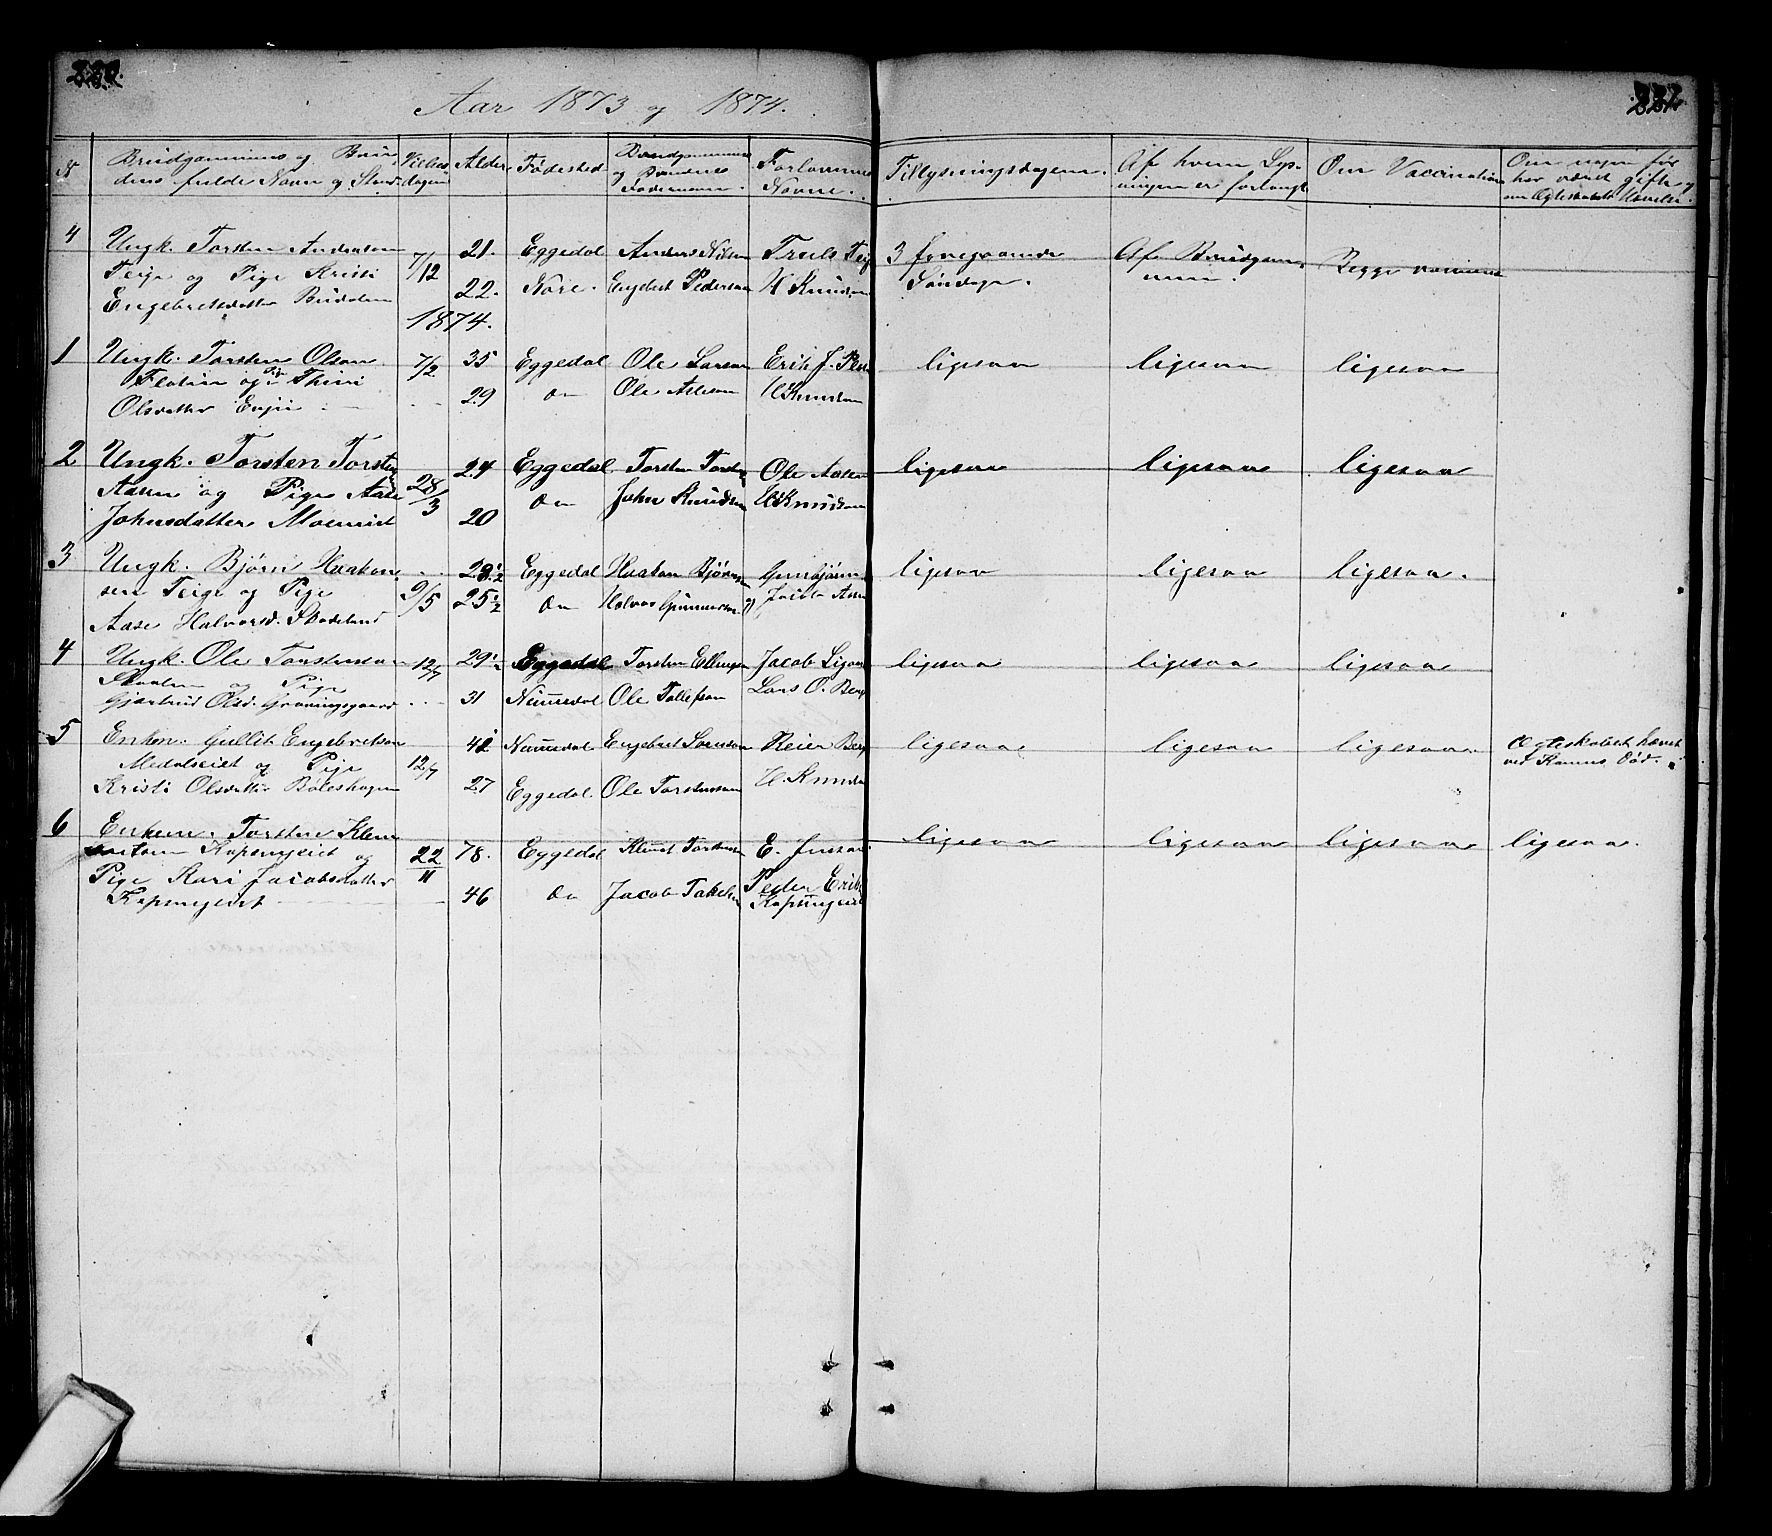 Aar 1873 og 1874.
N Brudgommens og Brudens fulde Navn og Stand. Vielses dagen Alder Fødested Brudgommens og Brudens Fædrenavn. Forlovernes Navne. Tillysningsdagen. Af hvem Lysningen er forlangt Om Vaccination Om nogen før har været gift, og om Ægteskabets Hævelse.
4 Ungk. Torsten Andersen 21. Eggedal Anders Nilsen Truls Teige 3 foregaaende Af Brudgom- Begge vaccinerede
Teige og Pige Kristi 7/12 22. Nore. Engebret Pedersen H Knudsen Søndage. men.
Engebretsdatter
1874.
1 Ungk. Torsten Olsen 7/2 35 Eggedal Ole Larsen Erik J. ligesaa ligesaa ligesaa
og Pige Thini 29 do Ole Aslesen H Knudsen
Olsdatter
2 Ungk. Torsten Torstens 24 Eggedal Torsten Torstens Ole Aasen ligesaa ligesaa ligesaa
Aasen og Pige Aase 28/3 20 do John Knudsen H Knudsen
Johnsdatter Moenviet
3 Ungk. Bjørn Haakon- 28 1/2 Eggedal Haakon Bjørnsen Gunbjørn ligesaa ligesaa ligesaa.
sen Teige og Pige 9/5 25 1/2 do Halvor Gunnersen og Jacob Aasen
Aase Halvorsd. Skadeland
4 Ungk. Ole Torstensen 12/7 29 1/2 Eggedal Torsten Ellingsen Jacob ligesaa ligesaa ligesaa
og Pige 31 Numedal Ole Tollefsen Lars O. Berg
Gjertrud Olsd.
5 Enkem. Gullik Engebretsen 42 Numedal Engebret Reier Berg ligesaa ligesaa ligesaa Ægteskabet hævet
Medalseiet og Pige 12/7 ved Konens Død.
Kristi Olsdatter Boleshagen 27 Eggedal. Ole Torstensen H. Knudsen
6 Enkem. Torsten Klem- 22/11 78. Eggedal Klemet Torstensen E. ligesaa ligesaa ligesaa ligesaa.
entsen Kopsengeiet og
Pige Kari Jacobsdatter 46 do Jacob Takelsen Peder Eriks
Kopsengeiet Kopsengeiet